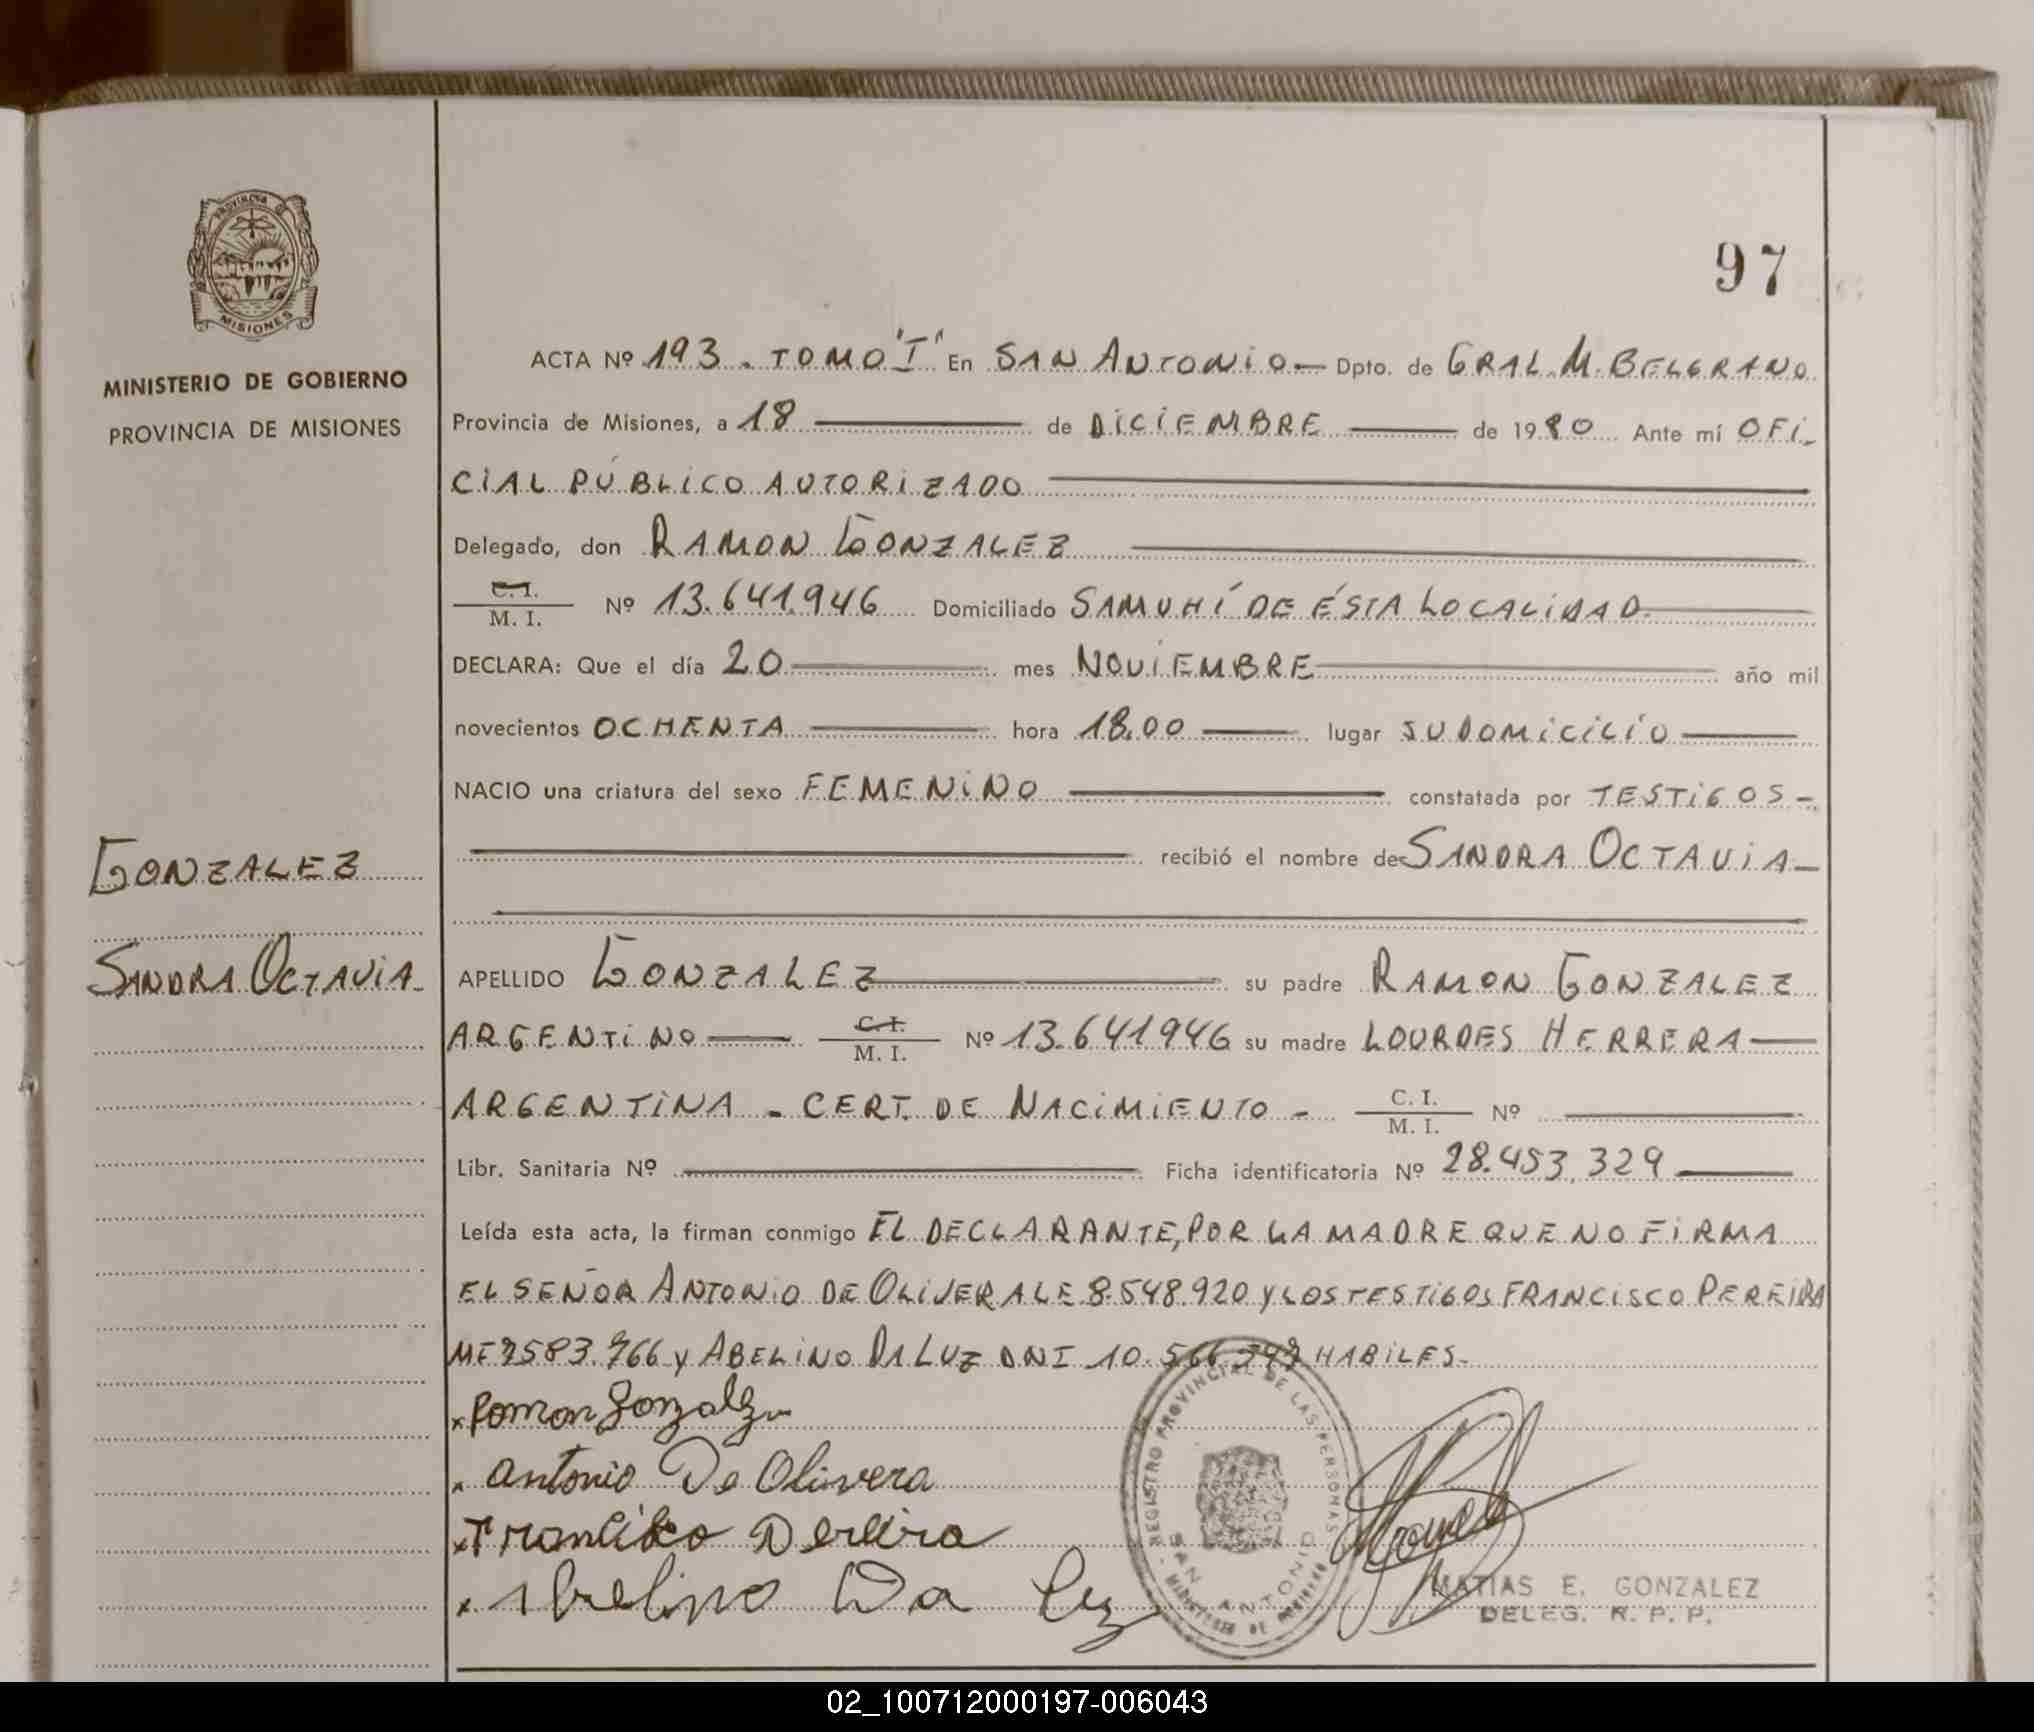 PROVINCIA DE
MISIONES
MINISTERIO DE GOBIERNO
PROVINCIA DE MISIONES
97
ACTA Nº 193. TOMO "I" En SAN ANTONIO — Dpto. de GRAL. M. BELGRANO
Provincia de Misiones, a 18 — de DICIEMBRE — de 1980 Ante mí OFI-
CIAL PÚBLICO AUTORIZADO —
Delegado, don RAMON GONZALEZ —
C. I.
M. I. Nº 13.641.946 Domiciliado SAMUHÍ DE ÉSTA LOCALIDAD. —
DECLARA: Que el día 20 — mes NOVIEMBRE — año mil
novecientos OCHENTA — hora 18.00 — lugar SU DOMICILIO —
NACIO una criatura del sexo FEMENINO — constatada por TESTIGOS -
— recibió el nombre de SANDRA OCTAVIA —
GONZALEZ
SANDRA OCTAVIA.
APELLIDO GONZALEZ — su padre RAMON GONZALEZ
ARGENTINO — C. I. / M. I. Nº 13.641946 su madre LOURDES HERRERA —
ARGENTINA - CERT. DE NACIMIENTO - C. I. / M. I. Nº —
Libr. Sanitaria Nº — Ficha identificatoria Nº 28.453.329 —
Leída esta acta, la firman conmigo EL DECLARANTE, POR LA MADRE QUE NO FIRMA
EL SEÑOR ANTONIO DE OLIVERA LE 8.548.920 Y LOS TESTIGOS FRANCISCO PEREIRA
MI 7583.766 y ABELINO DA LUZ DNI 10.566 HABILES.
x Ramon Gonzalez
x Antonio De Olivera
x Francisco Pereira
x Abelino Da Luz
REGISTRO PROVINCIAL DE LAS PERSONAS
SAN ANTONIO
MINISTERIO DE GOBIERNO
MATIAS E. GONZALEZ
DELEG. R. P. P.
02_100712000197-006043